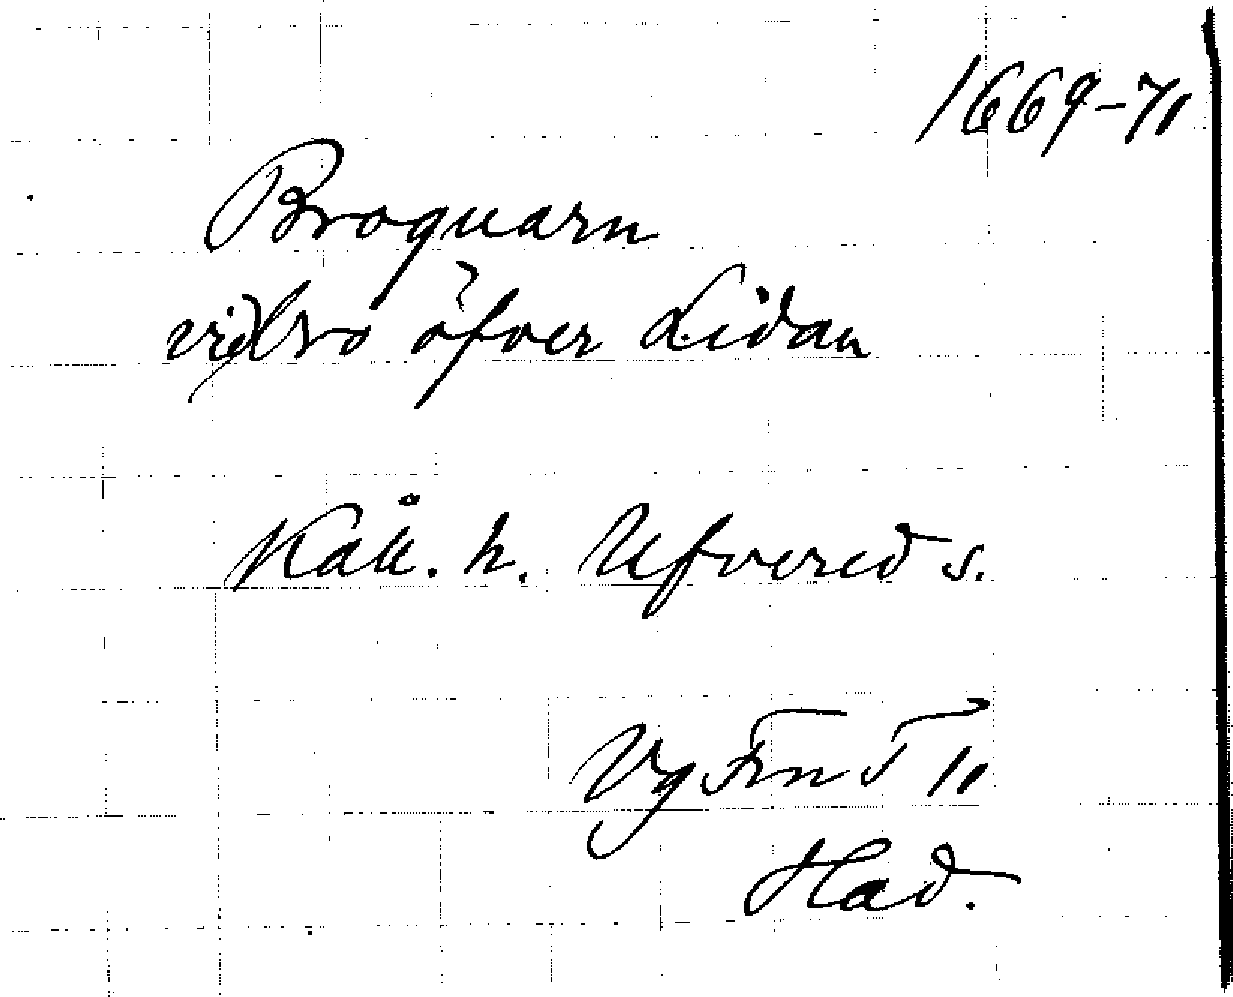 1669-71
Broquarn
vid bro öfver Lidan
Kåll. h. Ufvered s.
Vg Frn T 11
Had.